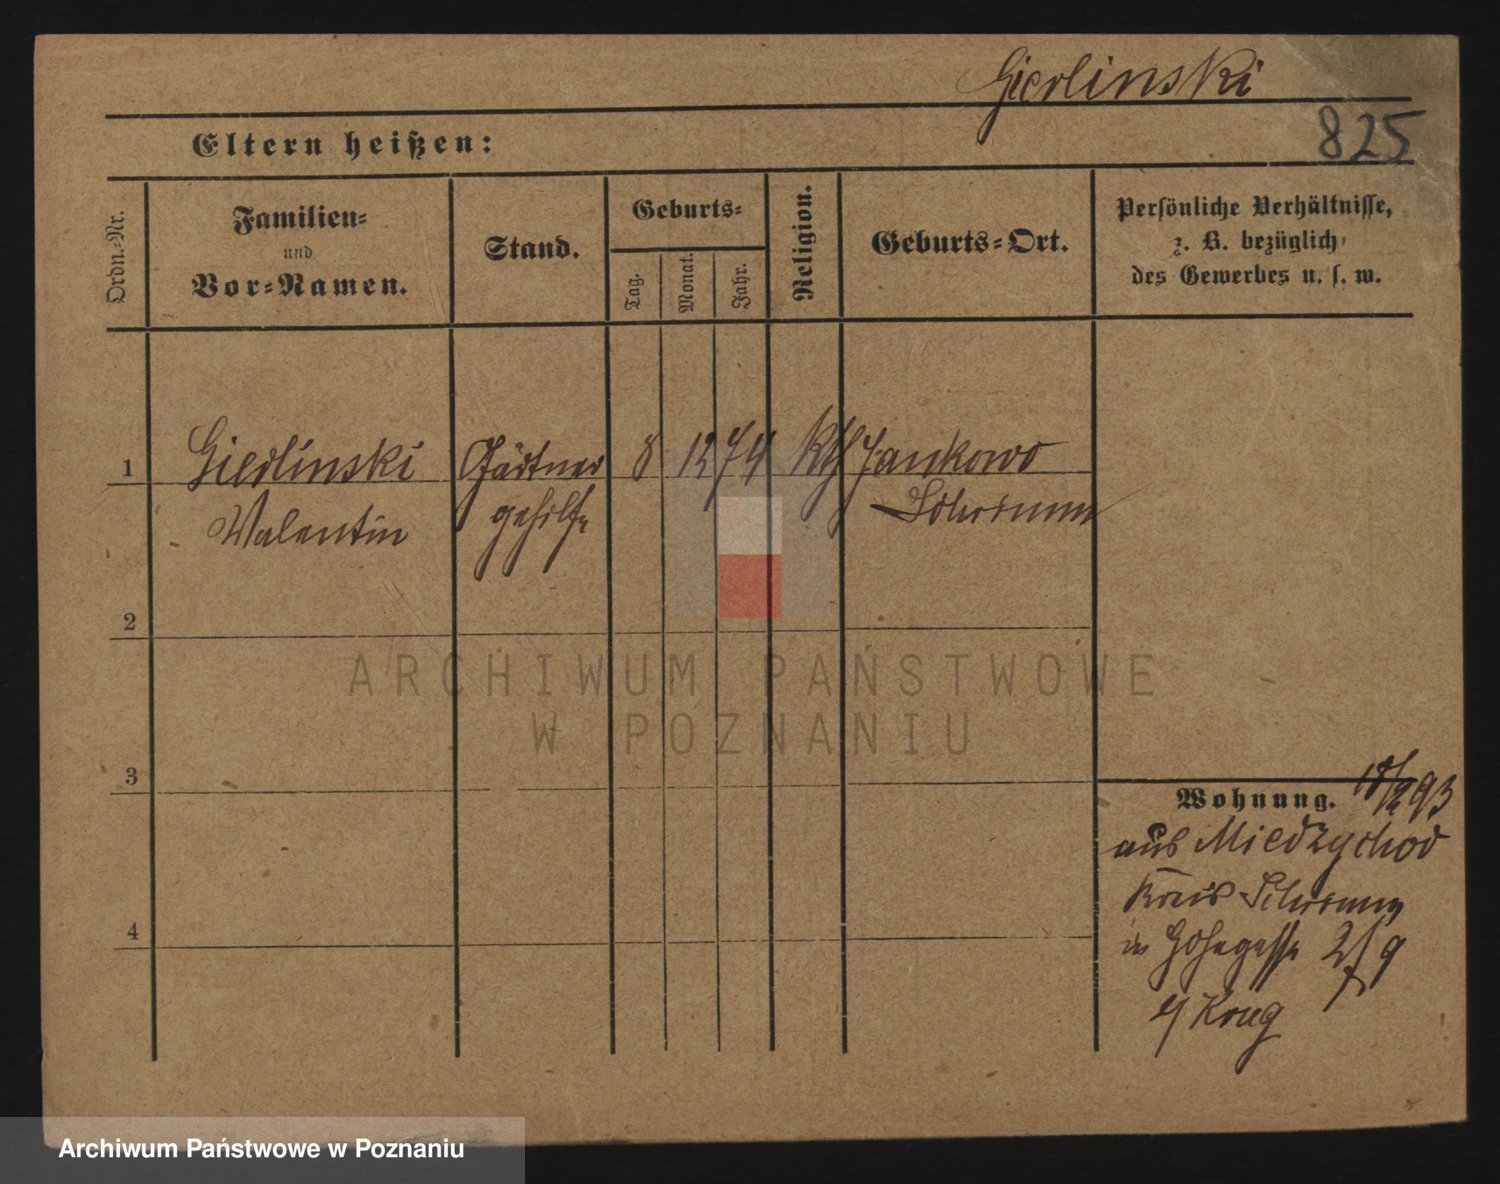 Gierlinski
825
Eltern heißen:
Ordn.-Nr.
Familien-
und
Vor-Namen.
Stand.
Geburts-
Tag.
Monat.
Jahr.
Religion.
Geburts-Ort.
Persönliche Verhältnisse,
z. B. bezüglich
des Gewerbes u. s. w.
1 Gierlinski Gärtner 8 12 74 Kth Jankowo
Valentin gehilfe Schrimm
2
ARCHIWUM PAŃSTWOWE
W POZNANIU
3
Wohnung. 18/2 93
aus Miedzychod
Kreis Schrimm
in 2/9
b/ Krug
4
Archiwum Państwowe w Poznaniu